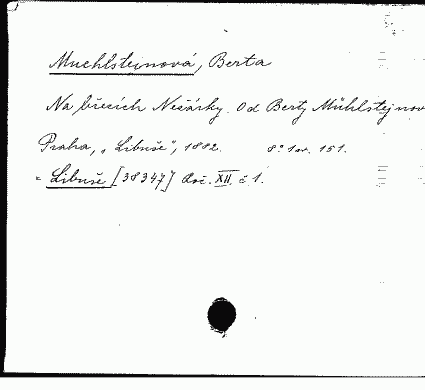 Muehlsteinová, Berta
Na březích Nežárky. Od Berty Mühlstejnov
Praha, „Libuše", 1882. 8° 1 sv. 151.
= Libuše [38347] Roč. XII. č 1.